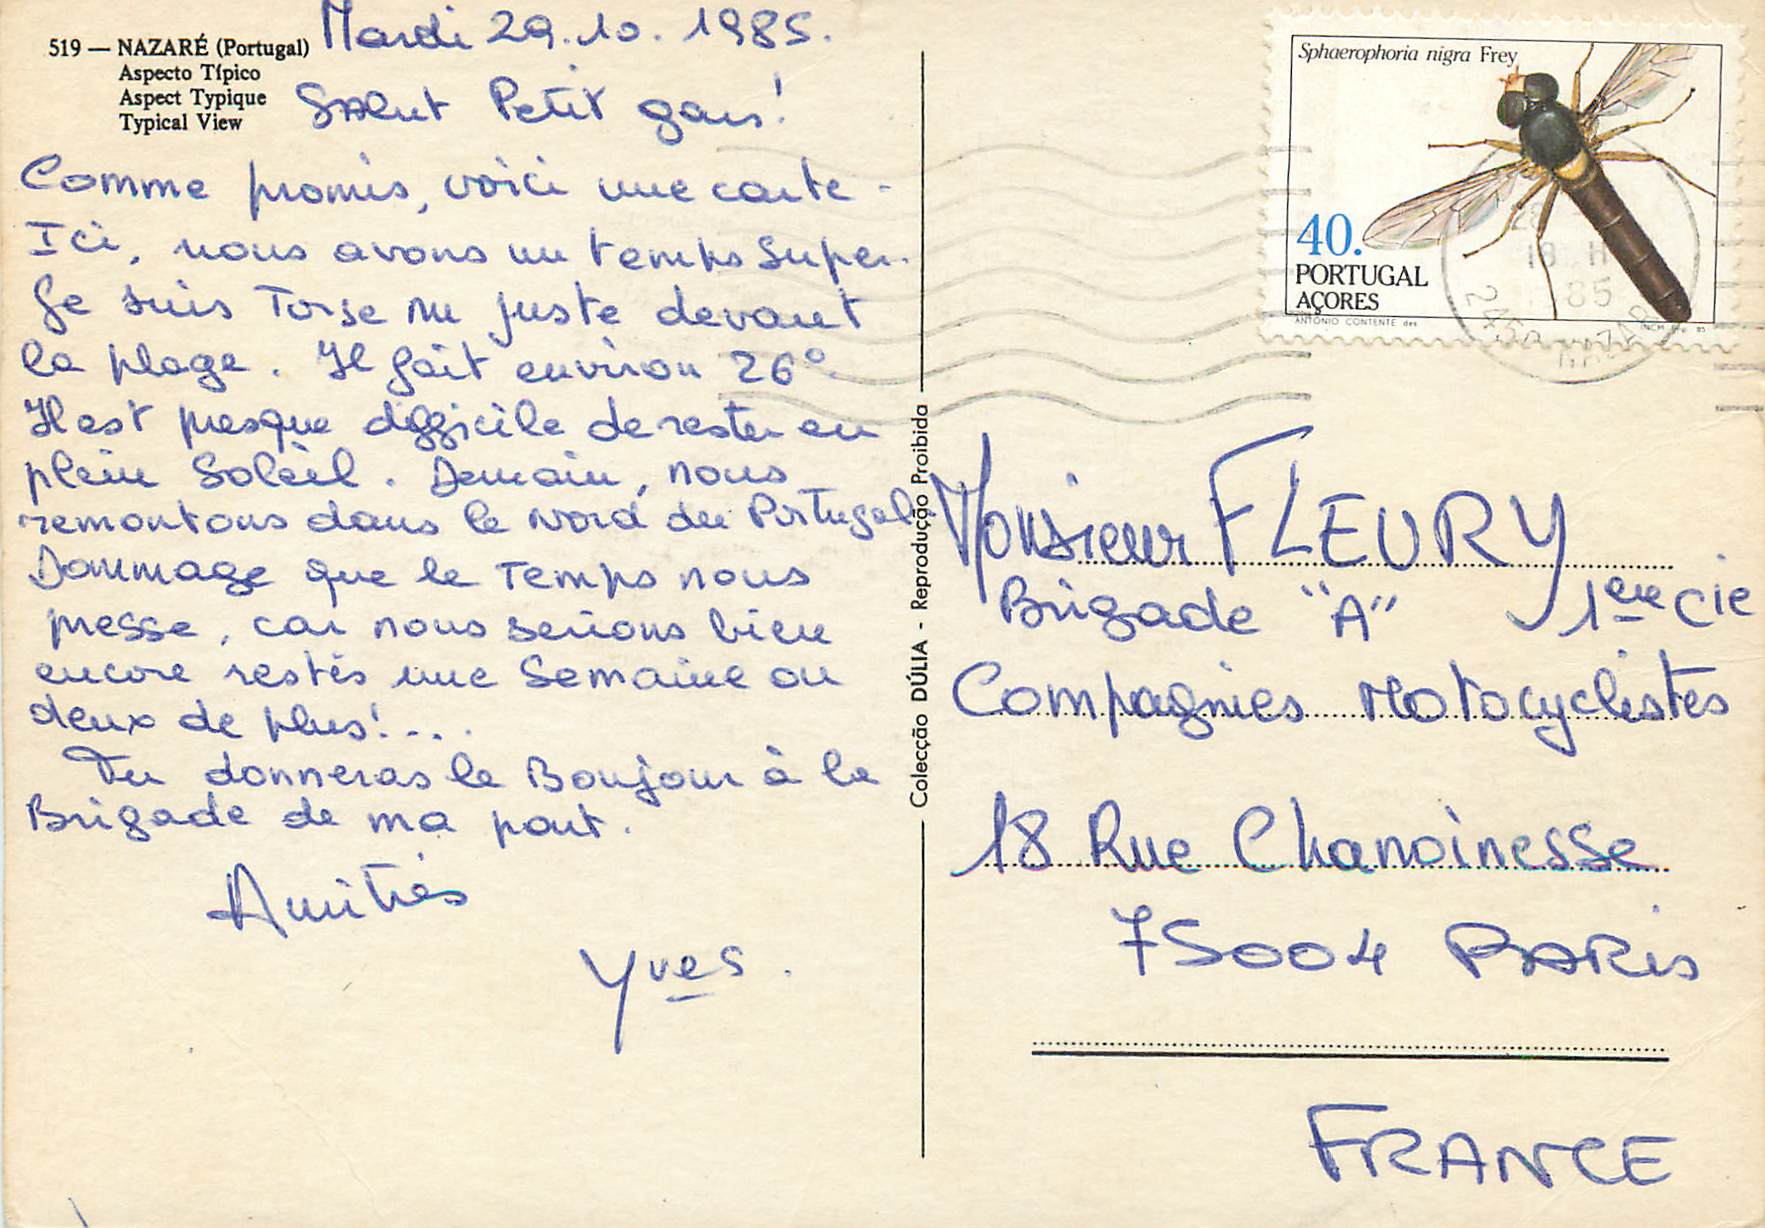 519 — NAZARÉ (Portugal)
Aspecto Típico
Aspect Typique
Typical View
Mardi 29.10.1985.
Salut Petit gars!
Comme promis, voici une carte.
Ici, nous avons un temps super.
Je suis Torse nu juste devant
la plage. Il fait environ 26°
Il est presque difficile de rester en
plein Soleil. Demain, nous
remontons dans le Nord du Portugal.
Dommage que le Temps nous
presse, car nous serions bien
encore restés une Semaine ou
deux de plus!...
Tu donneras le Bonjour à la
Brigade de ma part.
Amitiés
Yves.
Colecção DÚLIA - Reprodução Proibida
Sphaerophoria nigra Frey
40.
PORTUGAL
AÇORES
ANTÓNIO CONTENTE des
INCM
85
Monsieur FLEURY
Brigade "A" 1ere Cie
Compagnies Motocyclistes
18 Rue Chanoinesse
75004 PARIS
FRANCE